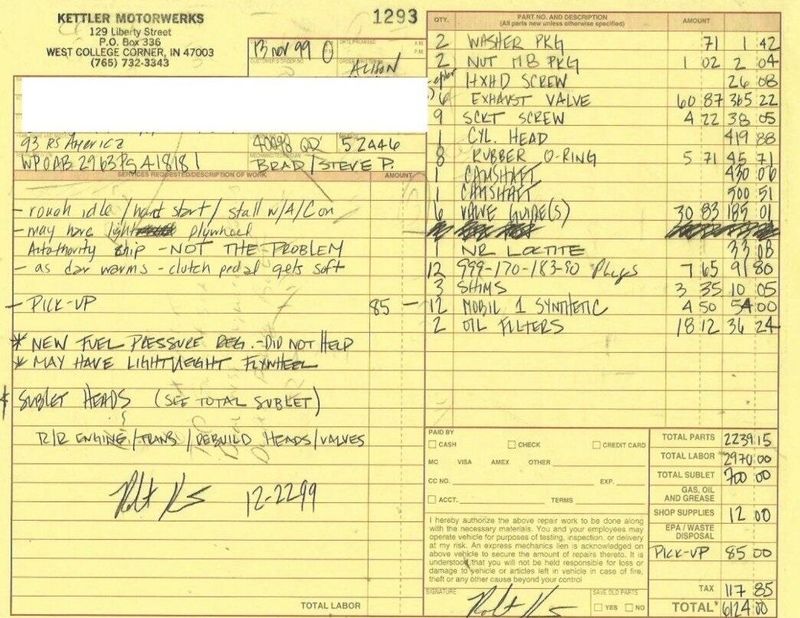 KETTLER MOTORWERKS
129 Liberty Street
P.O. Box 336
WEST COLLEGE CORNER, IN 47003
(765) 732-3343
1293
13 NOV 99
ALISON
93 RS AMERICA
40098
52446
WPOAB 2963PS418181
BRAD/STEVE P.
SERVICES REQUESTED/DESCRIPTION OF WORK AMOUNT
- rough idle / hard start / stall w/A/Con
- may have light flywheel
Autothority chip - NOT THE PROBLEM
- as car warms - clutch pedal gets soft
- PICK-UP 85 -
* NEW FUEL PRESSURE REG. - DID NOT HELP
* MAY HAVE LIGHTWEIGHT FLYWHEEL
* SUBLET HEADS (SEE TOTAL SUBLET)
R/R ENGINE/TRANS/REBUILD HEADS/VALVES
12-22-99
TOTAL LABOR
QTY. PART NO. AND DESCRIPTION AMOUNT
(All parts new unless otherwise specified)
2 WASHER PKG 71 1 42
2 NUT M8 PKG 1 02 2 04
HXHD SCREW 26 08
6 EXHAUST VALVE 60 87 365 22
9 SCKT SCREW 4 22 38 05
1 CYL. HEAD 419 88
8 RUBBER O-RING 5 71 45 71
1 CAMSHAFT 430 06
1 CAMSHAFT 500 51
6 VALVE GUIDE(S) 30 83 185 01
LOCTITE 33 08
12 999-170-183-90 Plugs 7 65 91 80
3 SHIMS 3 35 10 05
12 MOBIL 1 SYNTHETIC 4 50 54 00
2 OIL FILTERS 18 12 36 24
PAID BY
CASH CHECK CREDIT CARD
MC VISA AMEX OTHER
CC NO. EXP.
ACCT. TERMS
I hereby authorize the above repair work to be done along
with the necessary materials. You and your employees may
operate vehicle for purposes of testing, inspection, or delivery
at my risk. An express mechanics lien is acknowledged on
above vehicle to secure the amount of repairs thereto. It is
understood that you will not be held responsible for loss or
damage to vehicle or articles left in vehicle in case of fire,
theft or any other cause beyond your control
SIGNATURE
SAVE OLD PARTS
YES NO
TOTAL PARTS 2239.15
TOTAL LABOR 2970 00
TOTAL SUBLET 700 00
GAS, OIL AND GREASE
SHOP SUPPLIES 12 00
EPA / WASTE DISPOSAL
PICK-UP 85 00
TAX 117 85
TOTAL 6124.00